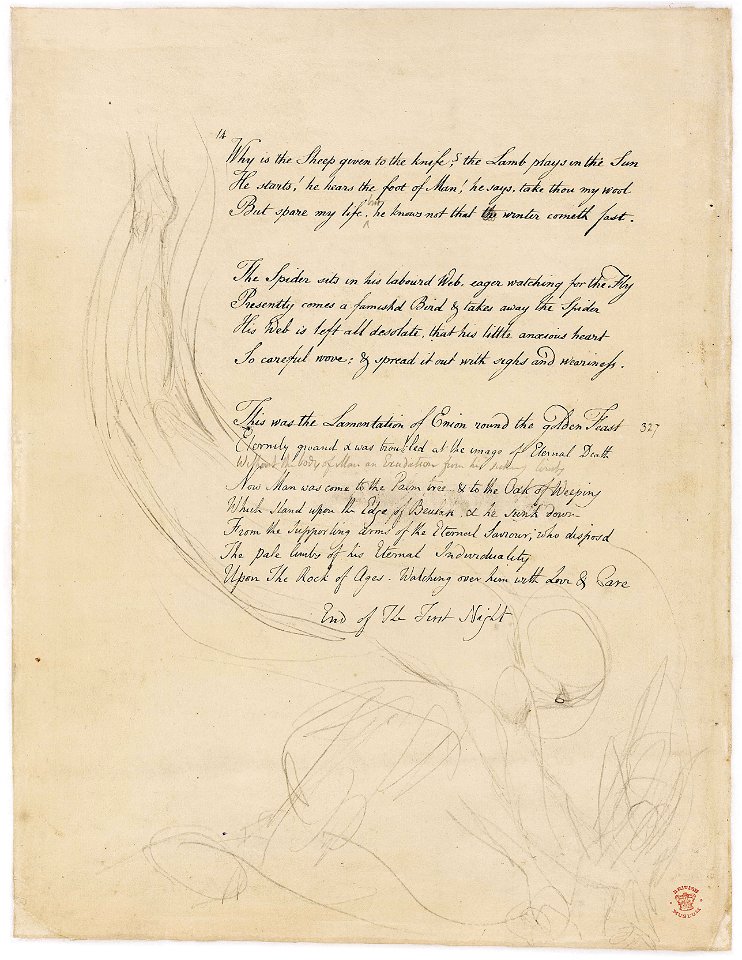 14
Why is the Sheep given to the knife? the Lamb plays in the Sun
He starts! he hears the foot of Man! he says, take thou my wool
But spare my life, but he knows not that the winter cometh fast.
The Spider sits in his labourd Web, eager watching for the Fly
Presently comes a famishd Bird & takes away the Spider
His Web is left all desolate, that his little anxious heart
So careful wove: & spread it out with sighs and weariness.
This was the Lamentation of Enion round the golden Feast
327
Eternity groand & was troubled at the image of Eternal Death
Without the body of Man an Exudation from his sickning limbs
Now Man was come to the Palm tree & to the Oak of Weeping
Which stand upon the Edge of Beulah & he sunk down
From the Supporting arms of the Eternal Saviour; who disposd
The pale limbs of his Eternal Individuality
Upon The Rock of Ages. Watching over him with Love & Care
End of The First Night
BRITISH
MUSEUM